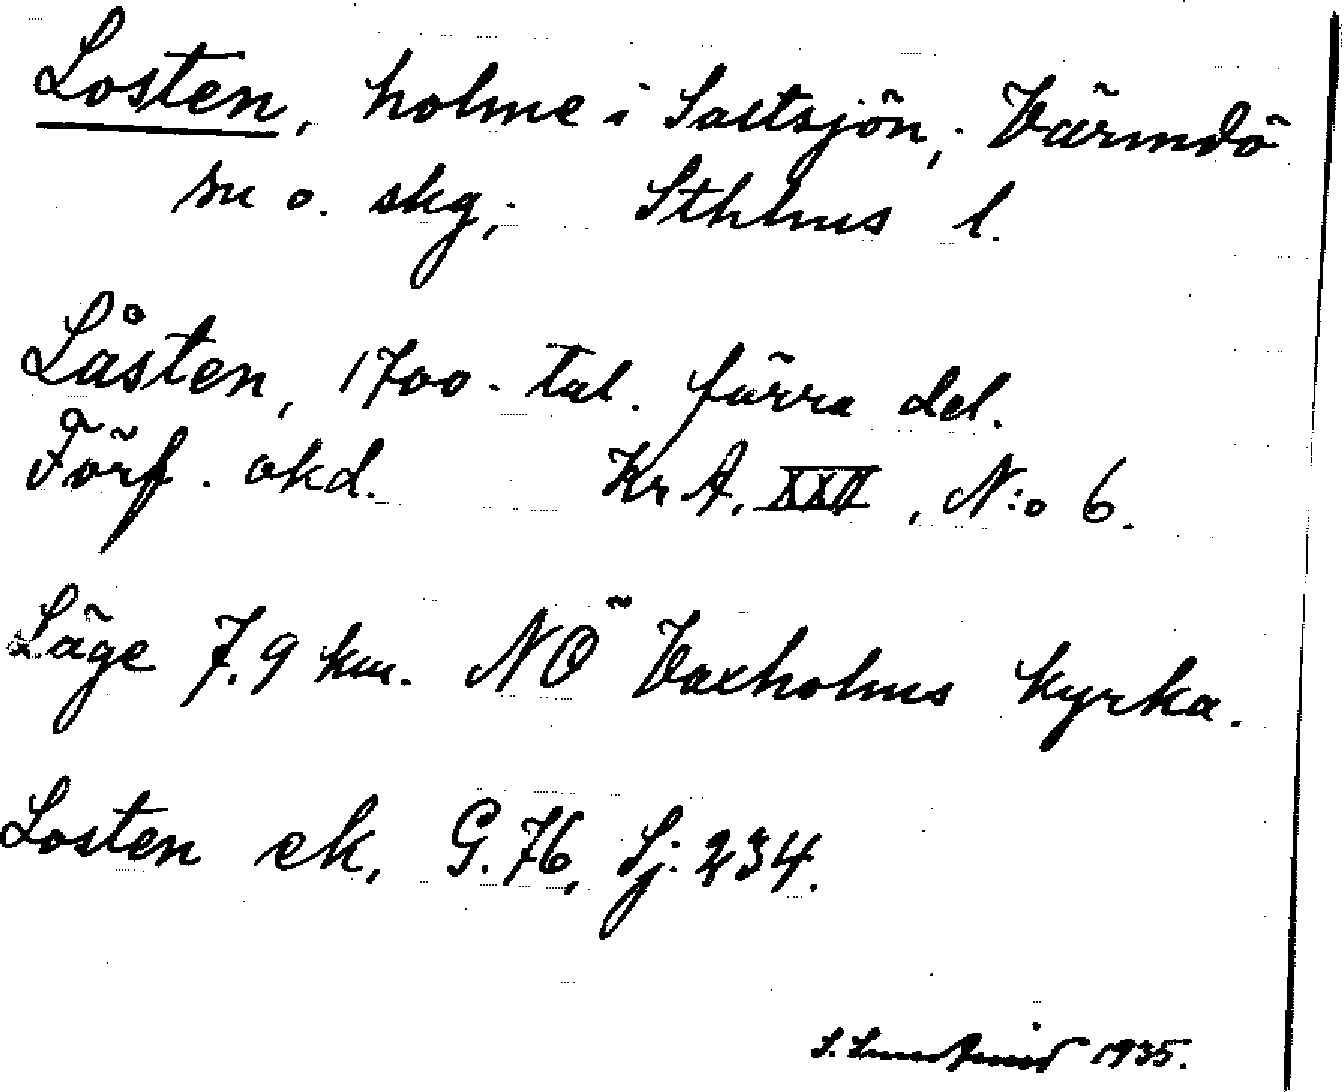 Losten, holme i Saltsjön; Värmdö
sn o. skg; Sthlms l.
Låsten, 1700-tal. förra del.
Förf. okd. Kr A. XXII, N:o 6.
Läge 7.9 km. NÖ Vaxholms kyrka.
Losten ek, G. 76, Sj: 234.
S. 1935.